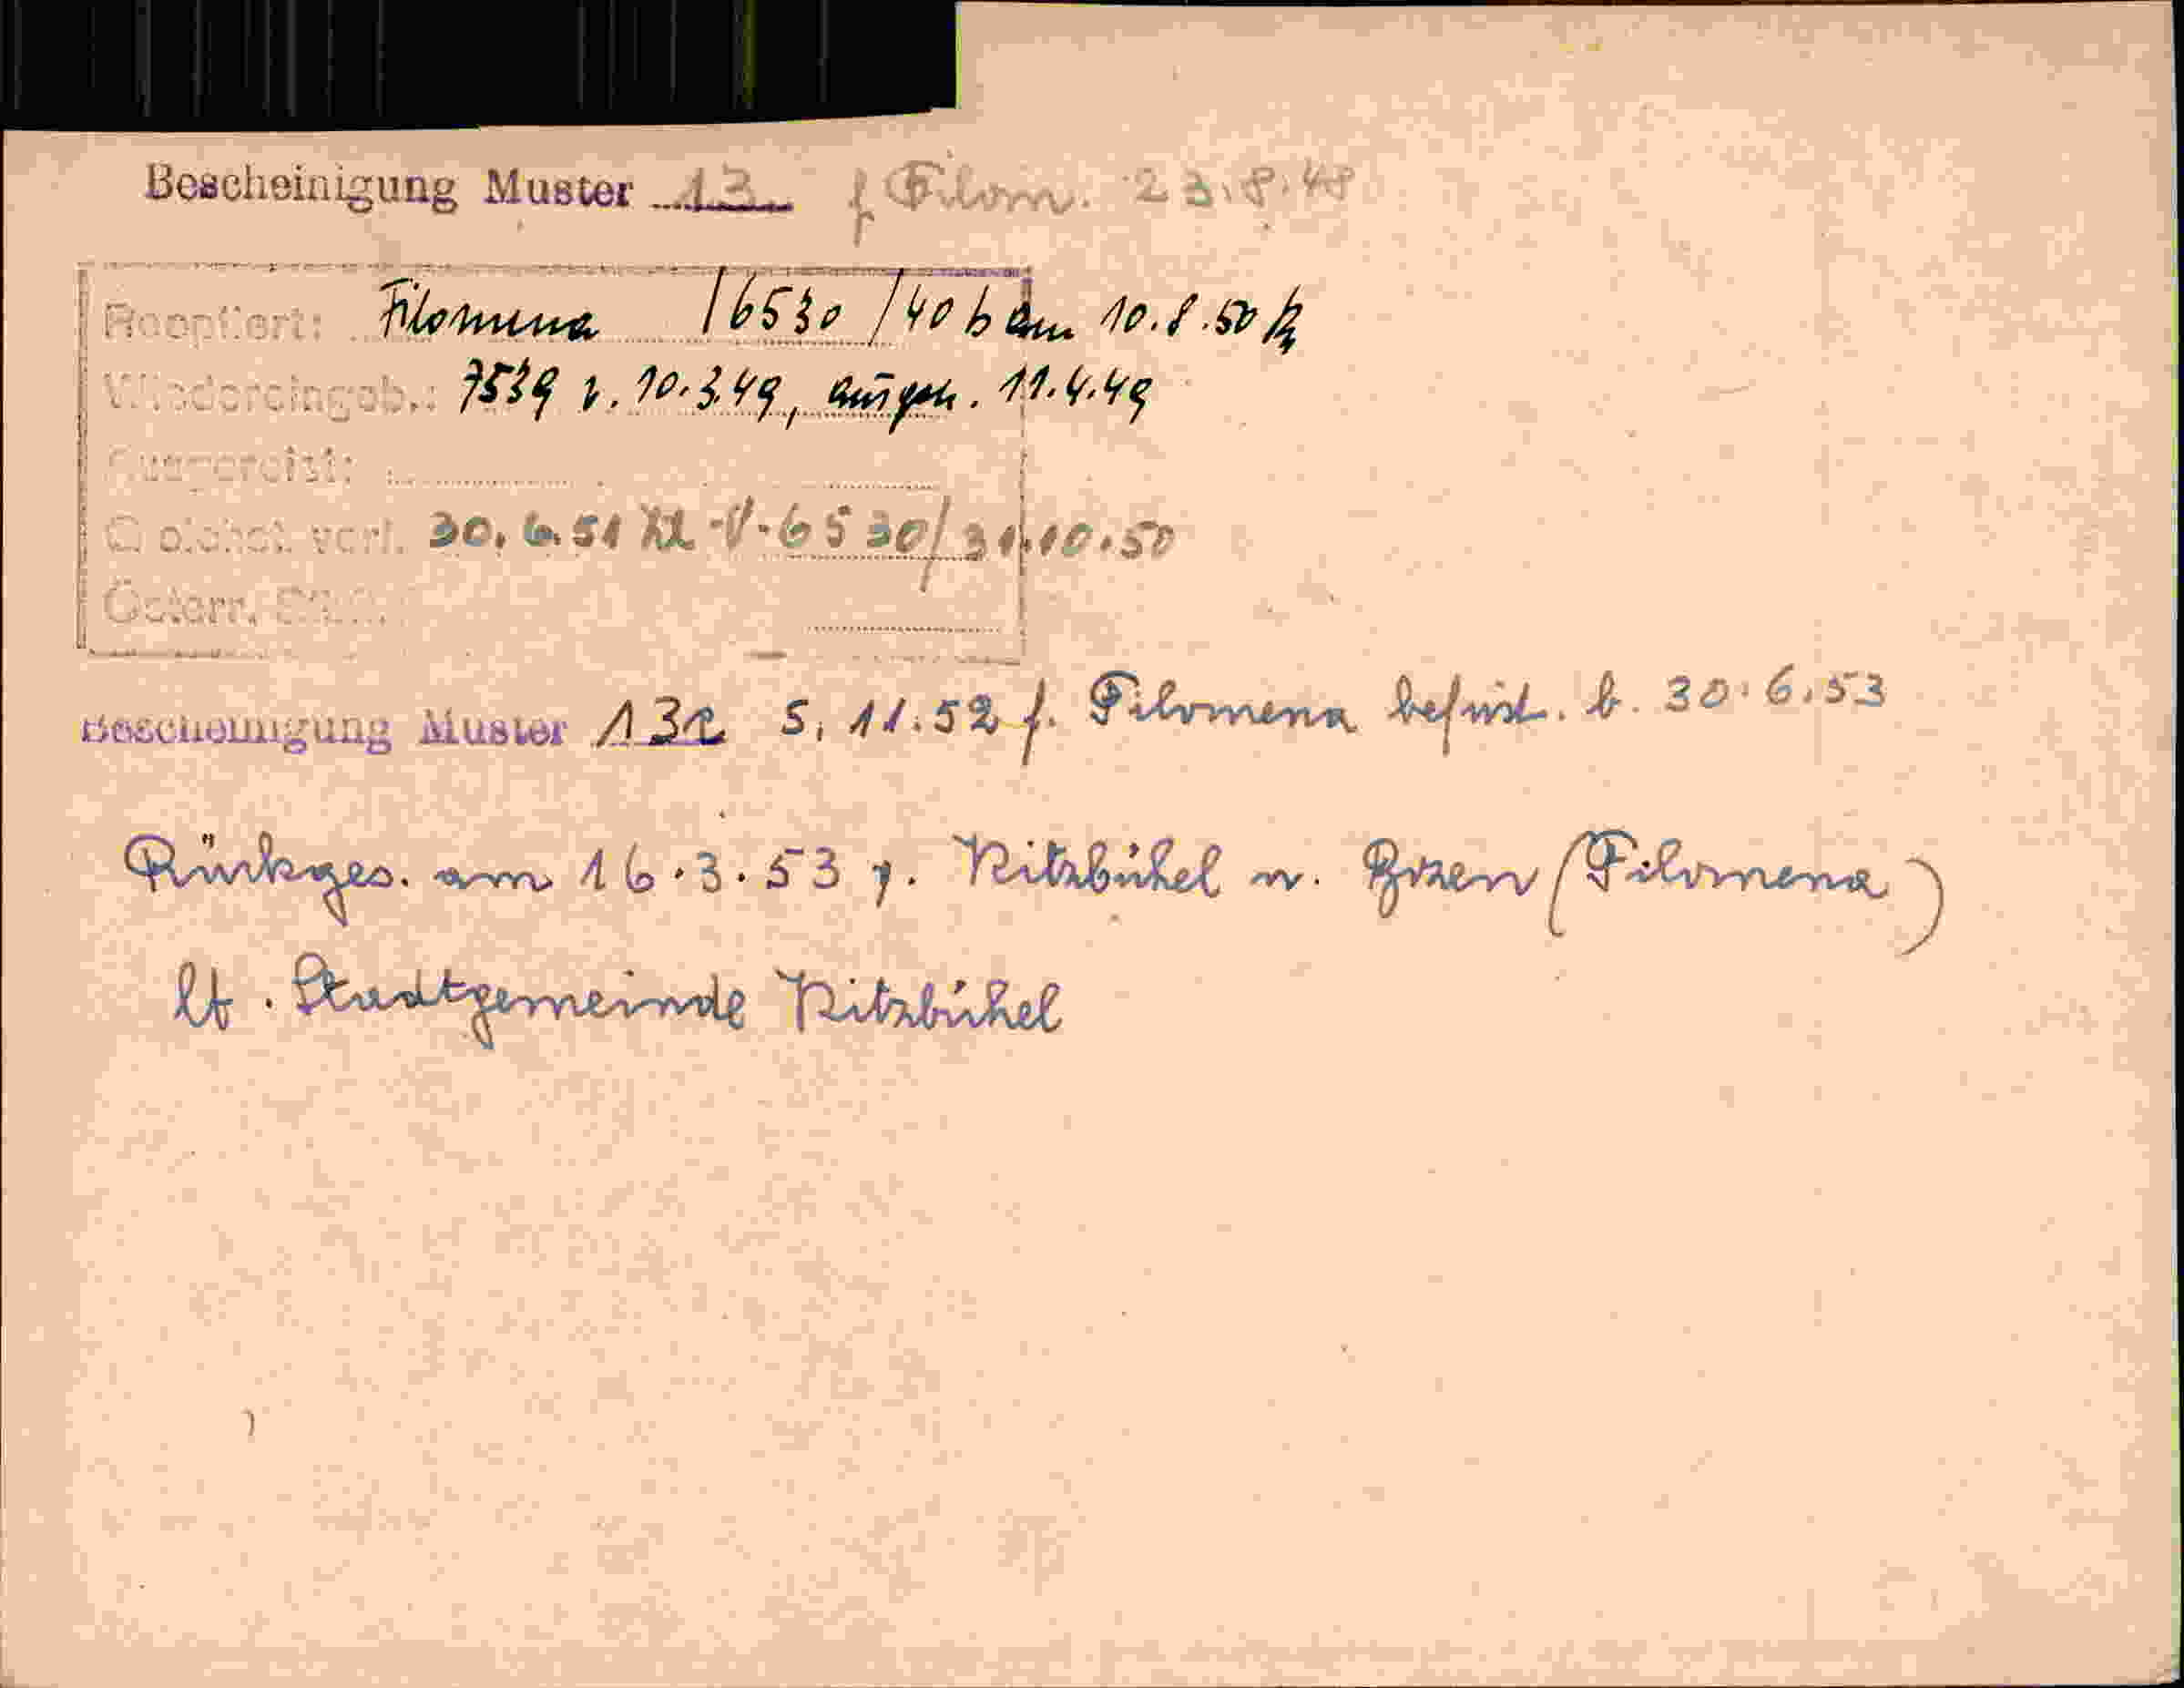 Bescheinigung Muster 13 f Filom. 23.8.48
Reoptiert: Filomena 16530/40 b am 10.8.50
Wiedereingeb.: 7539 v. 10.3.49, 11.4.49
Ausgereist:
Gleichst. verl. 30.6.51 6530/31.10.50
Österr.
Bescheinigung Muster 13a 5.11.52 f. Filomena befrist. b. 30.6.53
Rückges. am 16.3.53 v. Kitzbühel n. Bozen (Filomena)
lt. Stadtgemeinde Kitzbühel